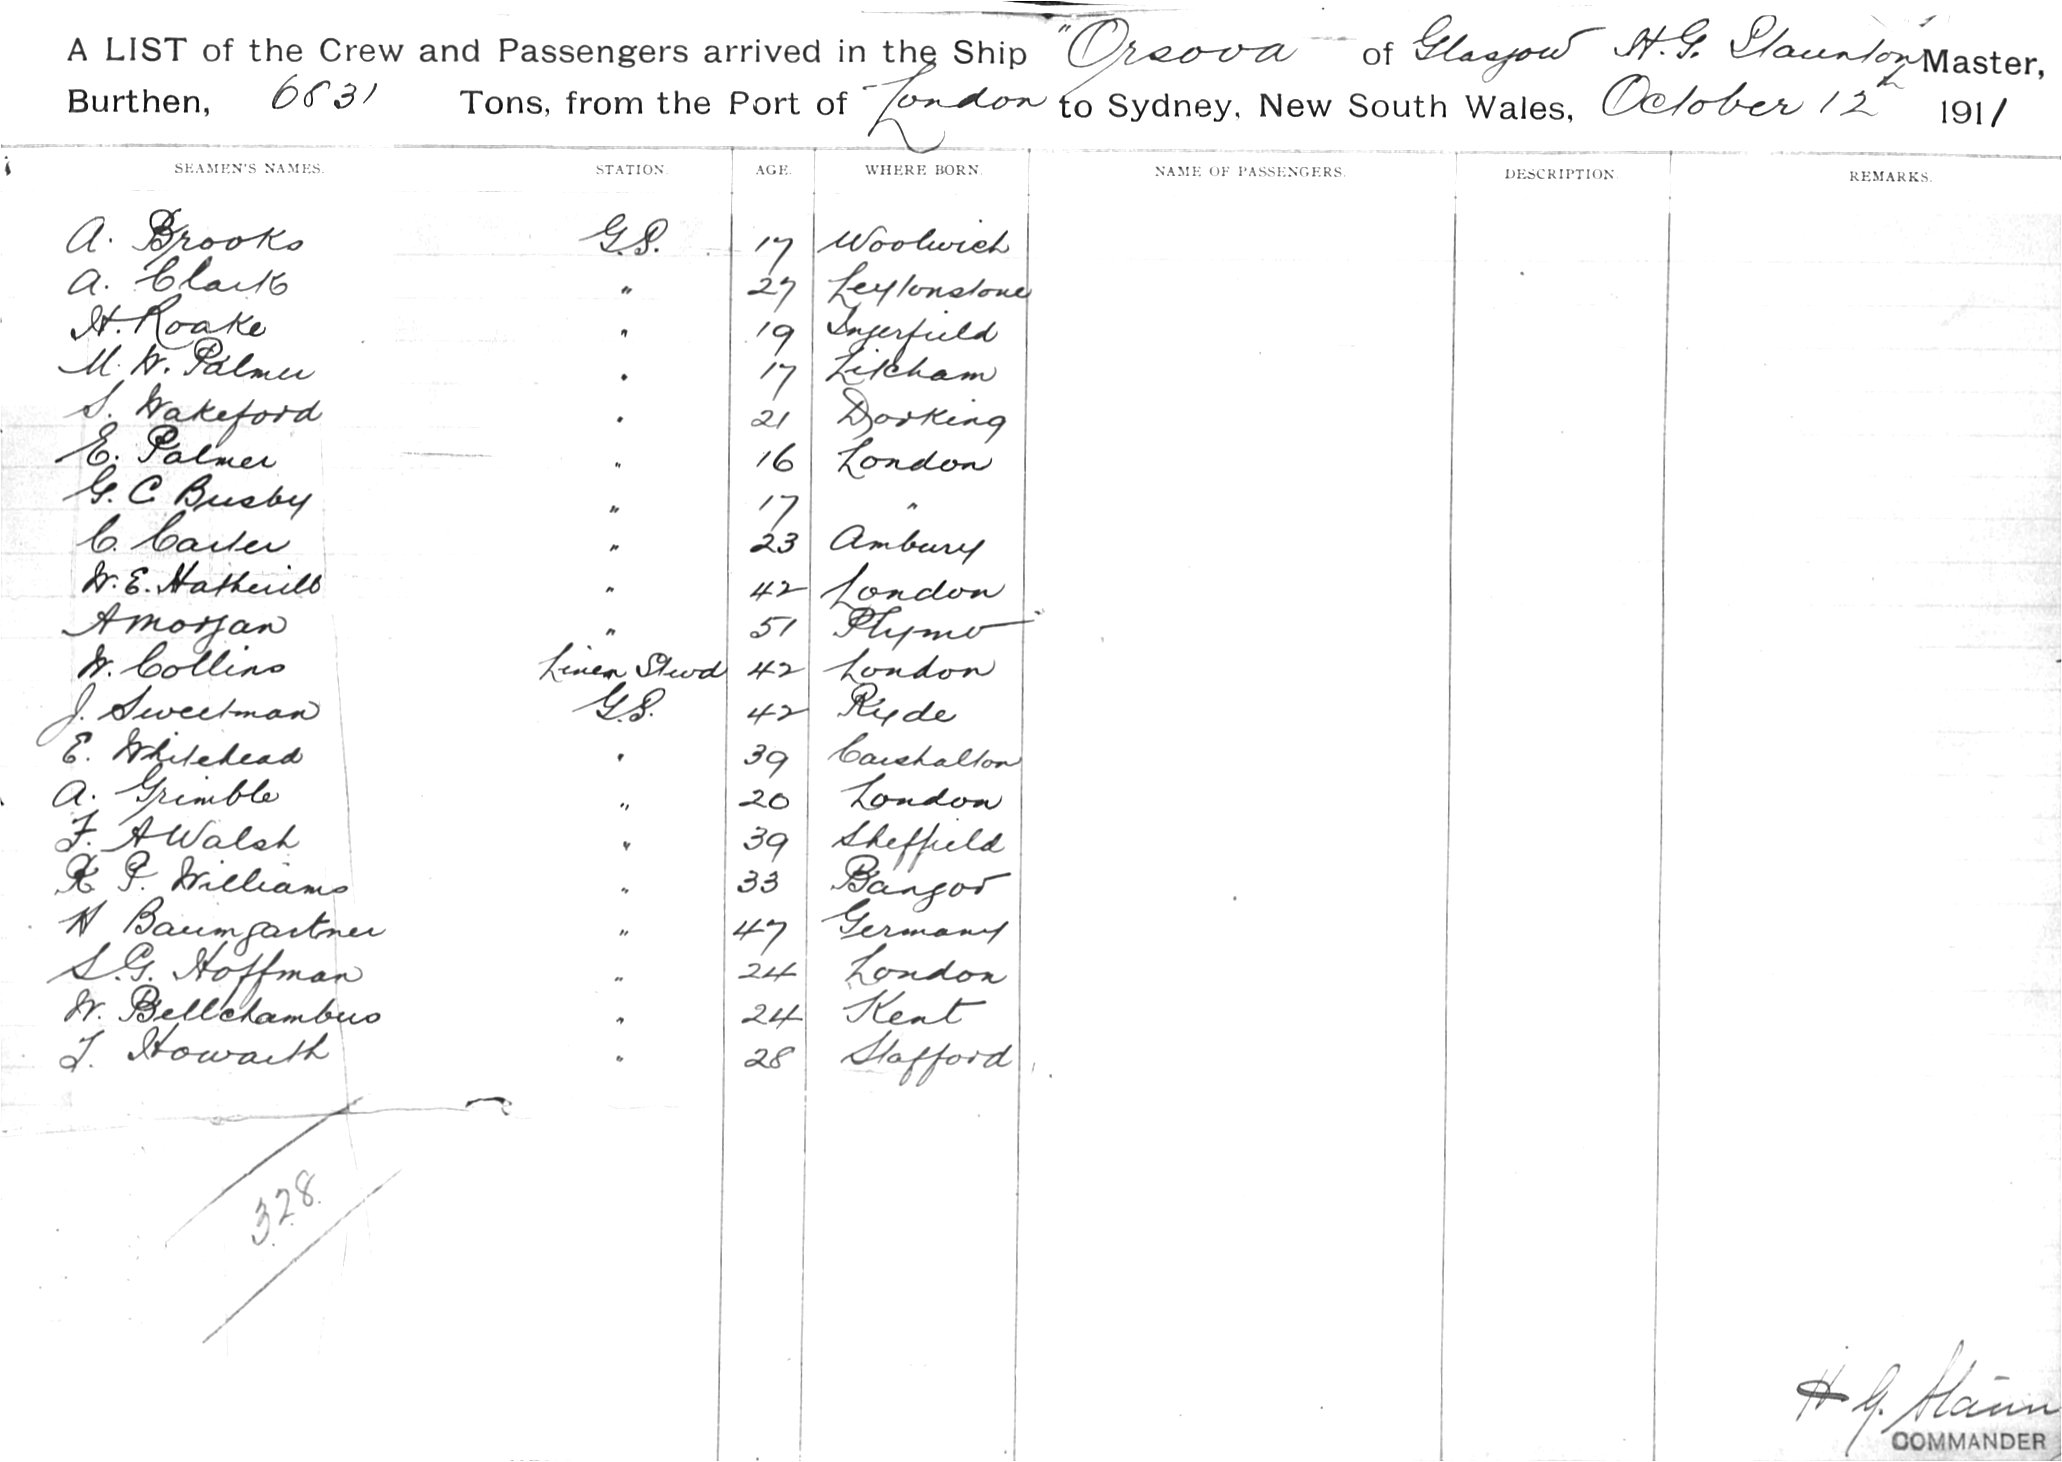 A LIST of the Crew and Passengers arrived in the Ship "Orsova" of Glasgow H. G. Staunton Master,
Burthen, 6831 Tons, from the Port of London to Sydney, New South Wales, October 12th 1911
SEAMEN'S NAMES. STATION. AGE. WHERE BORN. NAME OF PASSENGERS. DESCRIPTION. REMARKS.
A. Brooks G.S. 17 Woolwich
A. Clark " 27 Leytonstone
H. Roake " 19 Ingerfield
M. W. Palmer " 17 Litcham
S. Wakeford " 21 Dorking
E. Palmer " 16 London
G. C. Busby " 17 "
C. Carter " 23 Ambury
W. E. Hatherill " 42 London
A Morgan " 51 Plymo
W. Collins Linen Stwd 42 London
J. Sweetman G.S. 42 Ryde
E. Whitehead " 39 Carshalton
A. Grimble " 20 London
F. A Walsh " 39 Sheffield
R P. Williams " 33 Bangor
H Baumgartner " 47 Germany
S. G. Hoffman " 24 London
W. Bellchambers " 24 Kent
T. Howarth " 28 Stafford
328.
H G. Staun
COMMANDER